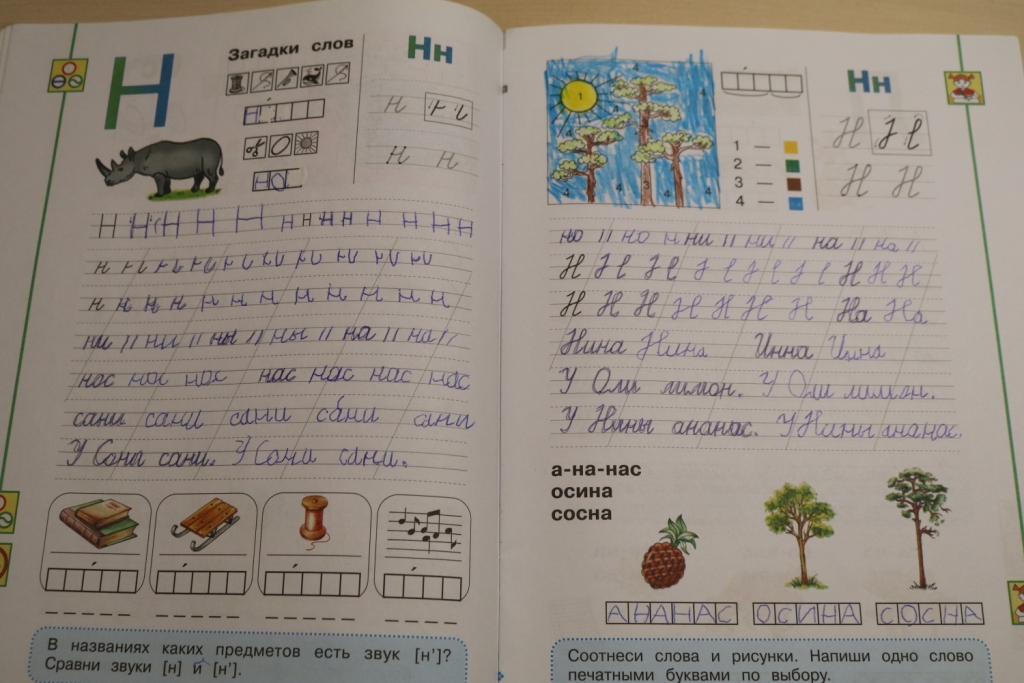 Н
Загадки слов
Нн
н н
нос
н н
Н Н Н Н Н н н н н н н н н
н н н н н н н н н н
н н н н н н н н н н н н
ни " ни " ны " ны " на " на "
нос нос нос нас нас нас нас
сани сани сани сани сани
У Сони сани. У Сони сани.
В названиях каких предметов есть звук [н']?
Сравни звуки [н] и [н'].
1
4
4
4
4
3
4
1 —
2 —
3 —
4 —
Нн
Н Н
Н Н
но " но " ни " ни " на " на "
Н Н Н Н Н Н Н Н Н
Н Н Н Н Н Н Н На На
Нина Нина Инна Инна
У Оли лимон. У Оли лимон.
У Нины ананас. У Нины ананас.
а-на-нас
осина
сосна
АНАНАС ОСИНА СОСНА
Соотнеси слова и рисунки. Напиши одно слово
печатными буквами по выбору.